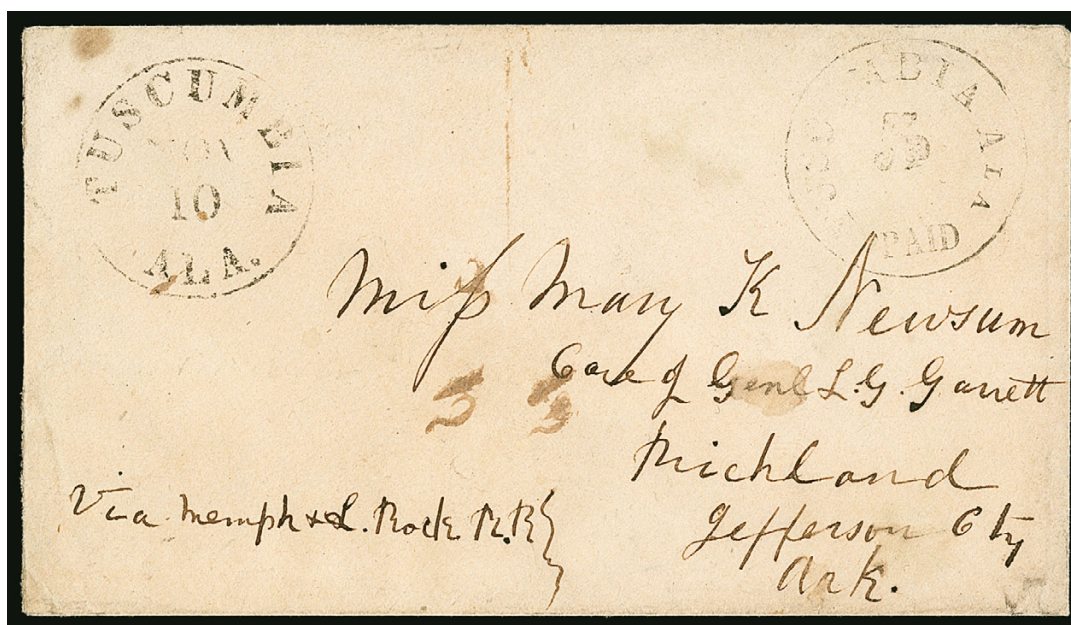 TUSCUMBIA ALA.
NOV
10
ALA
5
PAID
Miss Mary K Newsum
Care of Genl L. G. Garrett
Richland
Jefferson Cty
Ark.
Via Memph & L. Rock R.R